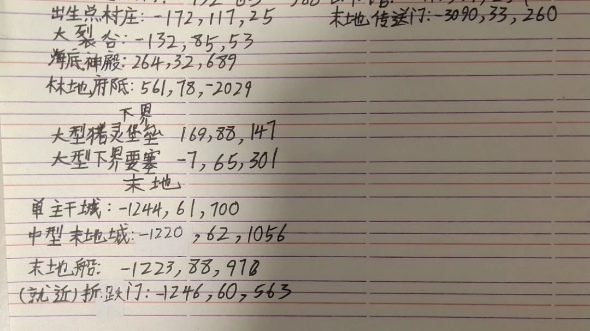 出生点村庄: -172,117,25 末地传送门: -3090,33,260
大裂谷: -132,85,53
海底神殿: 264,32,689
林地府邸: 561,78,-2029
下界
大型猪灵堡垒 169,88,147
大型下界要塞 -7,65,301
末地
单主干城: -1244,61,700
中型末地城: -1220,62,1056
末地船: -1223,88,978
(就近)折跃门: -1246,60,563